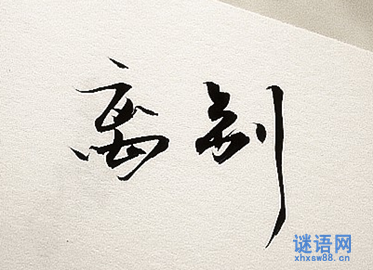 离别
谜语网
xhxsw88.cn